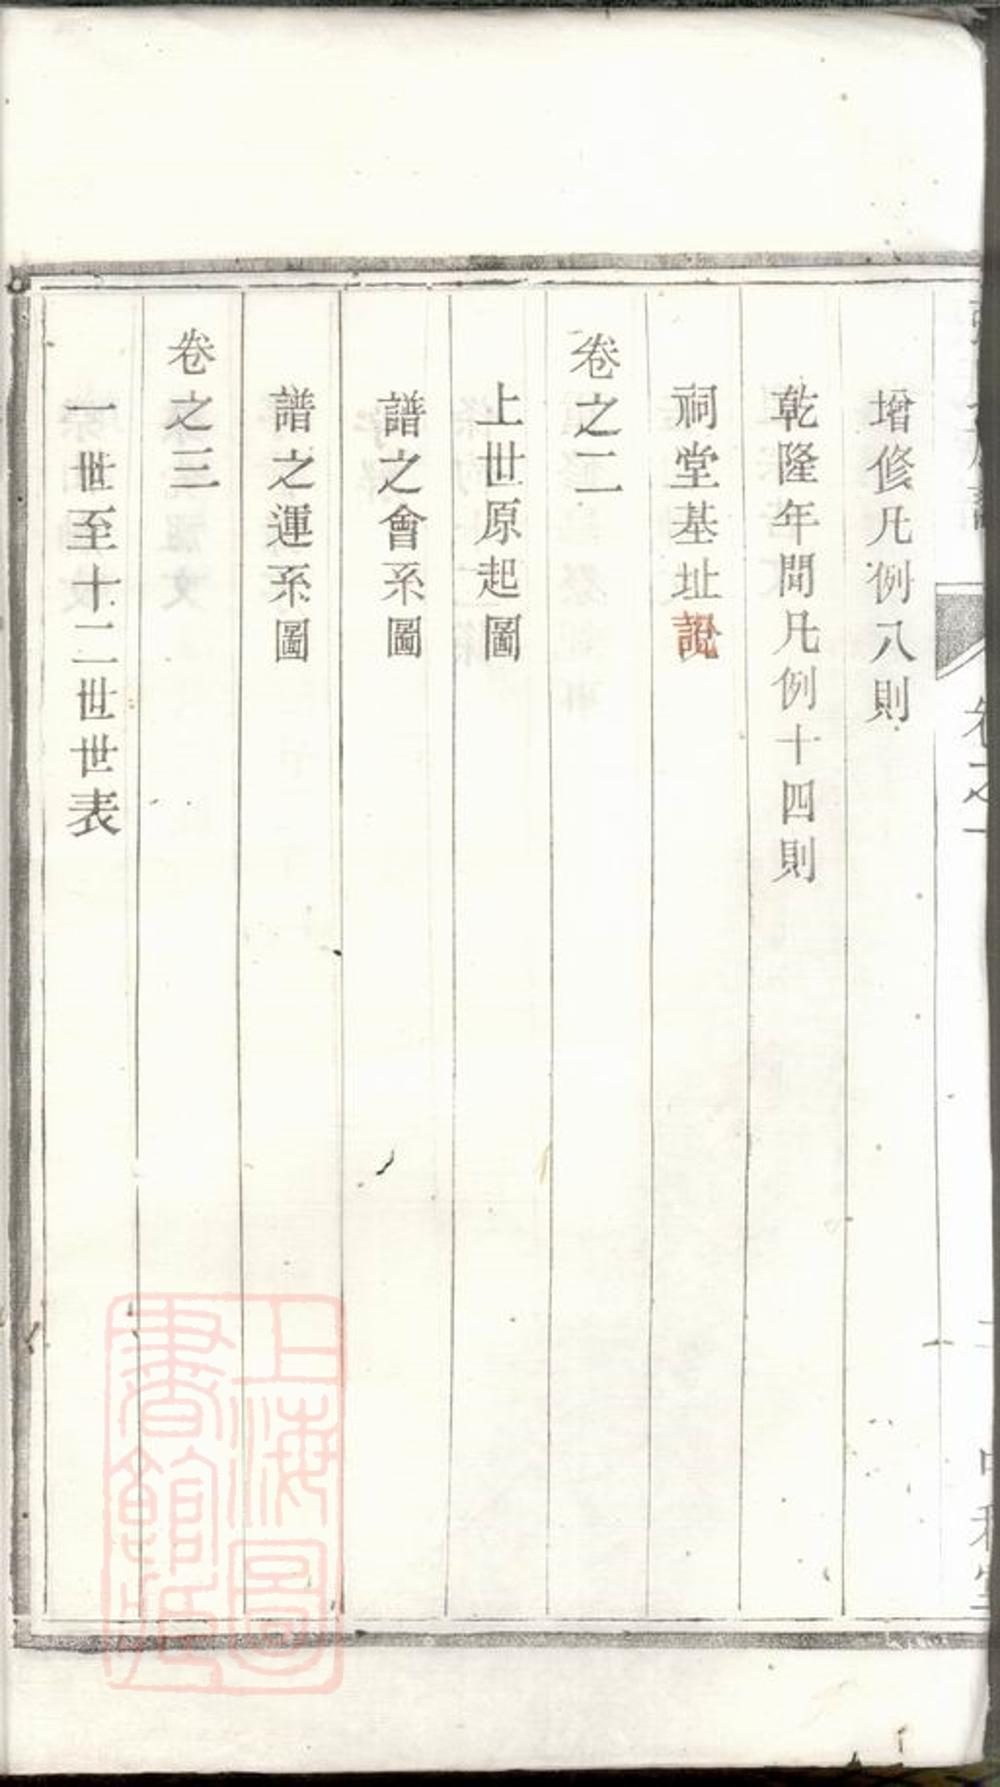 增修凡例八則
乾隆年間凡例十四則
祠堂基址說
卷之二
上世原起圖
譜之會系圖
譜之運系圖
卷之三
一世至十二世世表
卷之一
上海圖書館藏